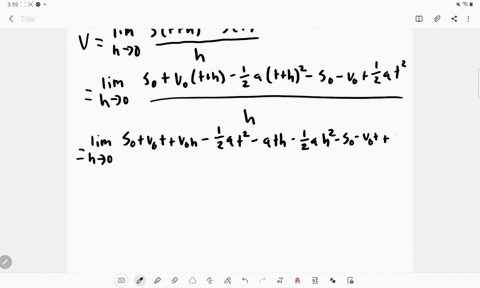 3:59
Title
V = lim h→0 s(t+h) - s(t) / h
= lim h→0 s₀ + v₀(t+h) - 1/2 a(t+h)² - s₀ - v₀ + 1/2 at² / h
= lim h→0 s₀ + v₀t + v₀h - 1/2 at² - ath - 1/2 ah² - s₀ - v₀t +